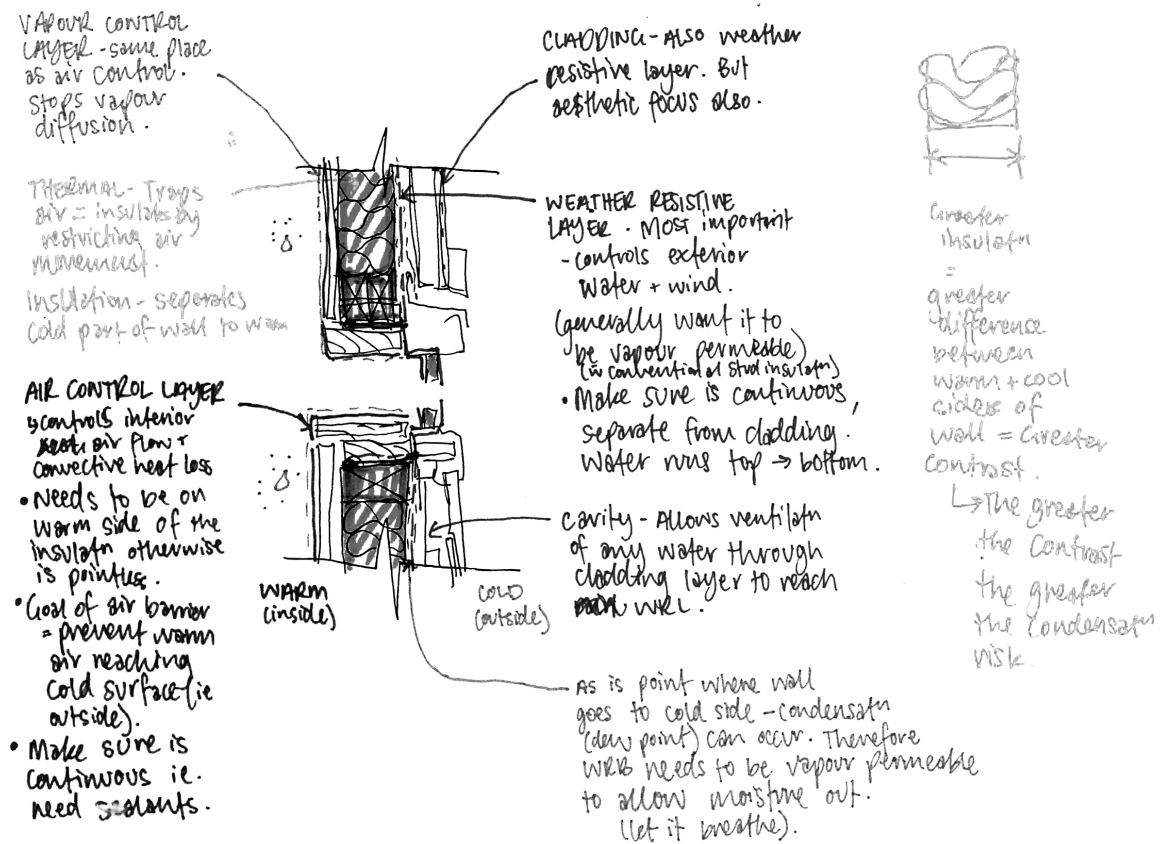 VAPOUR CONTROL
LAYER - same place
as air control.
stops vapour
diffusion.
THERMAL - Traps
air = insulates by
restricting air
movement.
Insulation - separates
cold part of wall to warm
AIR CONTROL LAYER
↳ controls interior
air flow +
convective heat loss
• Needs to be on
warm side of the
insulatn otherwise
is pointless.
• Goal of air barrier
= prevent warm
air reaching
cold surface (ie
outside).
• Make sure is
continuous ie.
need sealants.
WARM
(inside)
COLD
(outside)
CLADDING - ALSO weather
resistive layer. But
aesthetic focus also.
WEATHER RESISTIVE
LAYER. MOST important
- controls exterior
water + wind.
(generally want it to
be vapour permeable)
(in conventional stud insulatn)
• Make sure is continuous,
separate from cladding.
Water runs top → bottom.
Cavity - Allows ventilatn
of any water through
cladding layer to reach
WRL.
AS is point where wall
goes to cold side - condensatn
(dew point) can occur. Therefore
WRB needs to be vapour permeable
to allow moisture out.
(let it breathe).
Greater
insulatn
=
greater
difference
between
warm + cool
sides of
wall = Greater
contrast.
↳ The greater
the contrast
the greater
the condensatn
risk.